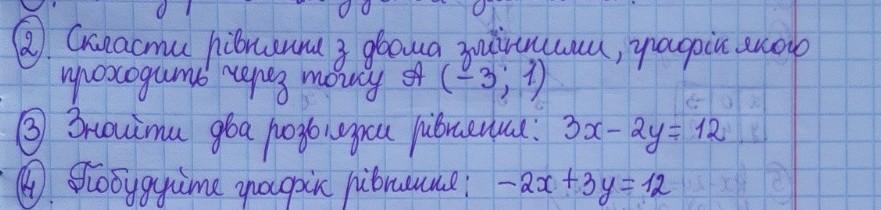 ② Скласти рівняння з двома змінними, графік якого
проходить через точку А (−3; 1)
③ Знайти два розв'язки рівняння: 3x − 2y = 12
④ Побудуйте графік рівняння: −2x + 3y = 12